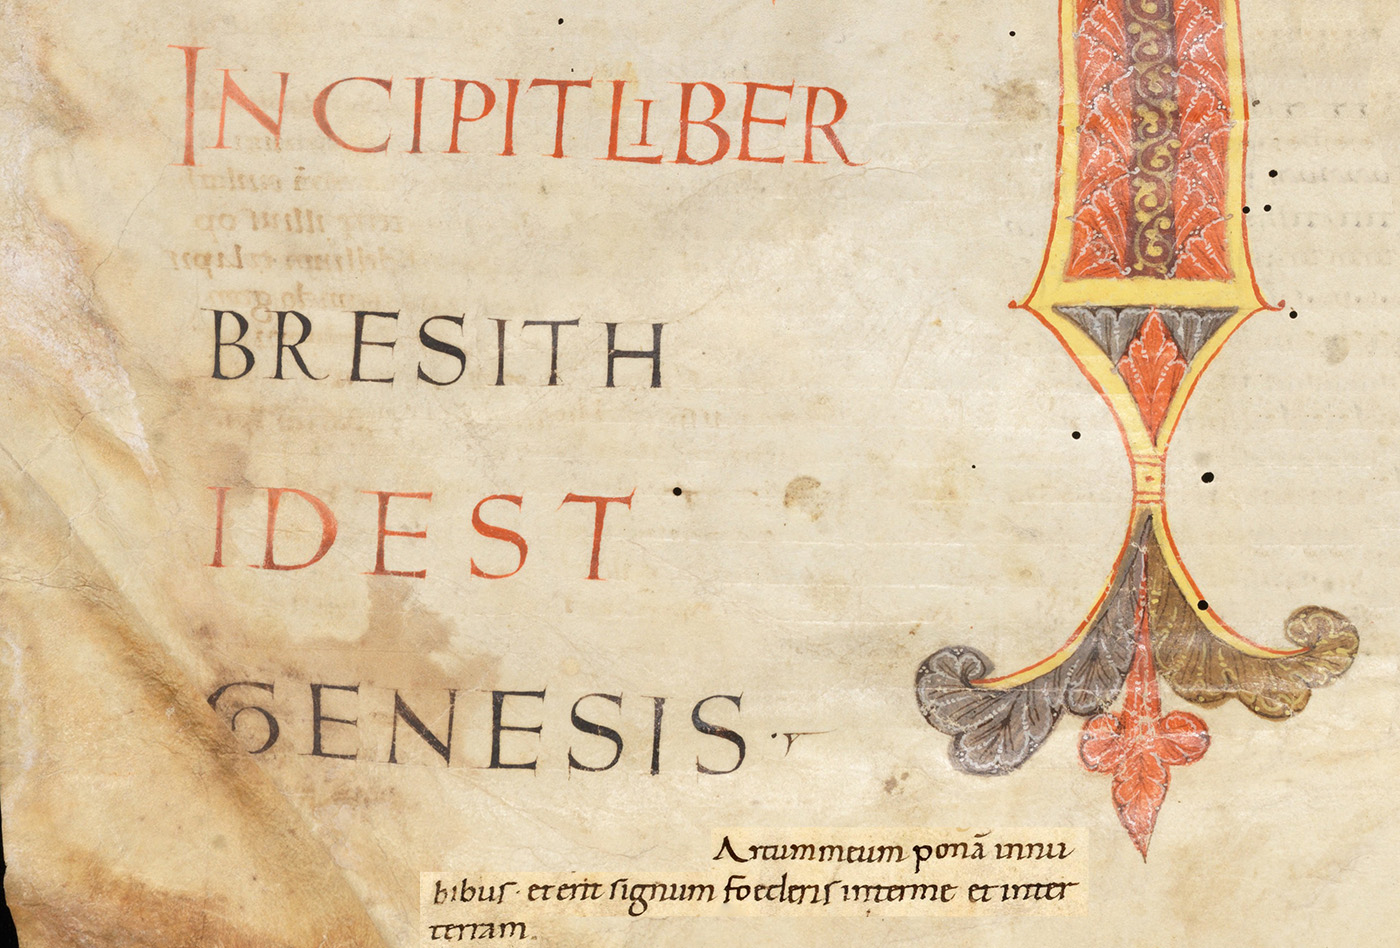 INCIPIT LIBER
BRESITH
IDEST
GENESIS
Arcum meum ponā innu
bibus · et erit signum foederis inter me et inter
terram